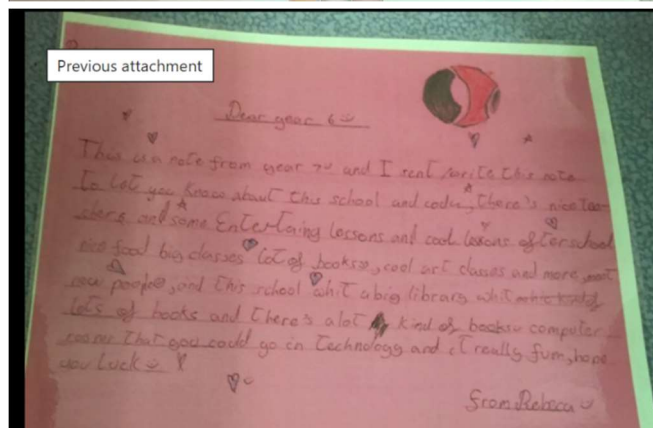 Previous attachment
Dear year 6
This is a note from year 7 and I this note
to let you know about this school and , there's nice tea-
chers and some Entertaing lessons and cool lessons after school
nice food big classes lot of books, cool art classes and more, meet
new people, and this school whit a big library whit kind of
lots of books and there's alot kind of books computer
rooms that you could go in technology and it really fun, hope
you luck
from Rebeca